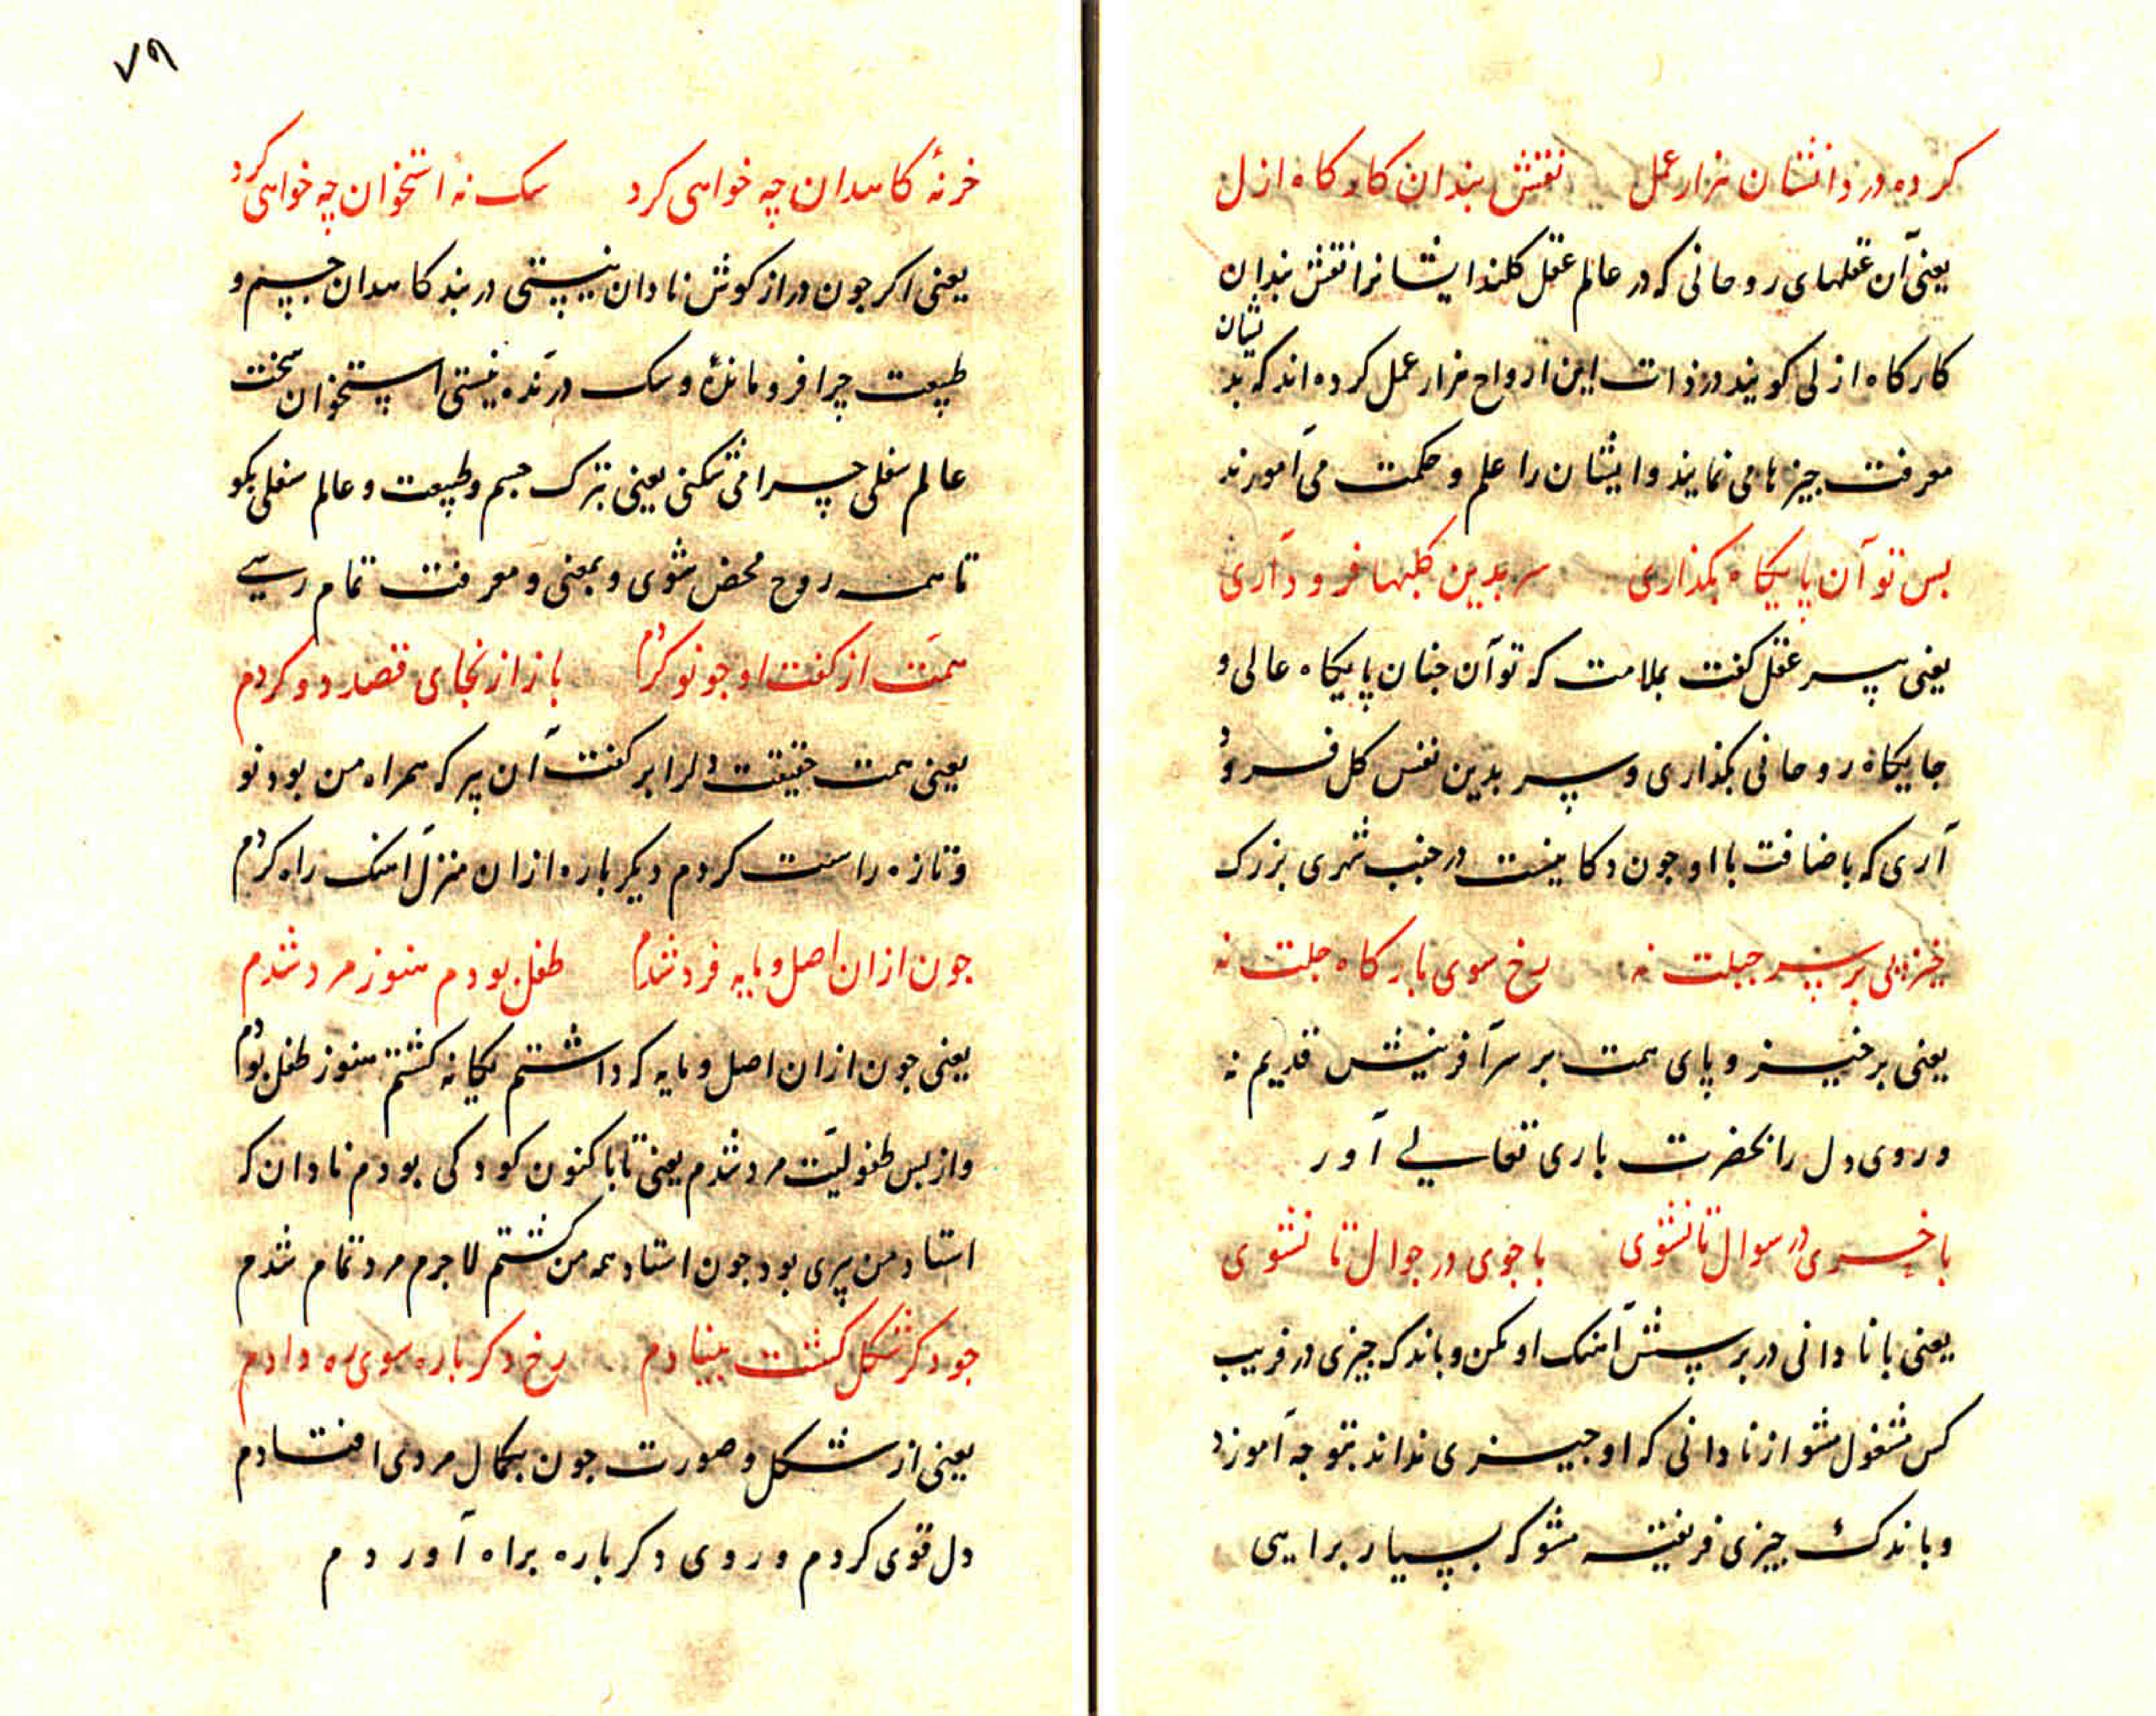 کرده در ذاتشان هزار عمل نقش بندان کارکاه ازل
یعنی آن عقلهای روحانی که در عالم عقل کلند ایشانرا نقش بندان
کارکاه ازلی کویند در ذات این ارواح هزار عمل کرده اند که بدیشان
معرفت چیزها می نمایند و ایشان را علم و حکمت می آموزند
بس تو آن پایکاه بکذاری سر بدین کلبها فرود آری
یعنی پیر عقل کفت بملامت که تو آن چنان پایکاه عالی و
جایکاه روحانی بکذاری و سر بدین نفس کل فرود
آری که باضافت با او جون دکانیست در جنب شهری بزرک
خیز پی بر سر جبلت نه رخ سوی بارکاه جلت نه
یعنی برخیز و پای همت بر سر آفرینش قدیم نه
و روی دل را بحضرت باری تعالی آور
با خری در سوال تا نشوی با جوی در جوال تا نشوی
یعنی با نادانی در پرسش آهنک او مکن و باندک چیزی در فریب
کس مشغول مشو از نادانی که او چیزی نداند بتو چه آموزد
و باندک چیزی فریفته مشو که بسیار برایی
۷۹
خر نهٔ کاهدان چه خواهی کرد سک نهٔ استخوان چه خواهی کرد
یعنی اکر جون دراز کوش نادان نیستی در بند کاهدان جسم و
طبیعت چرا فرو ماندهٔ و سک درنده نیستی استخوان سخت
عالم سفلی چرا می شکنی یعنی بترک جسم و طبیعت و عالم سفلی بکو
تا همه روح محض شوی و بمعنی و معرفت تمام رسی
همت از کفت او جو نو کردم باز از انجای قصد دو کردم
یعنی همت حقیقت دلرا بر کفت آن پیر که همراه من بود نو
و تازه راست کردم دیکر باره ازان منزل آهنک راه کردم
جون ازان اصل و مایه فرد شدم طفل بودم هنوز مرد شدم
یعنی جون ازان اصل و مایه که داشتم یکانه کشتم هنوز طفل بودم
و از پس طفولیت مرد شدم یعنی تا باکنون کودکی بودم نادان که
استاد من پیری بود جون استاد همه من کشتم لاجرم مرد تمام شدم
جو دکر شکل کشت بنیادم رخ دکر باره سوی ره دادم
یعنی از شکل و صورت جون بکمال مردی افتادم
دل قوی کردم و روی دکر باره براه آوردم